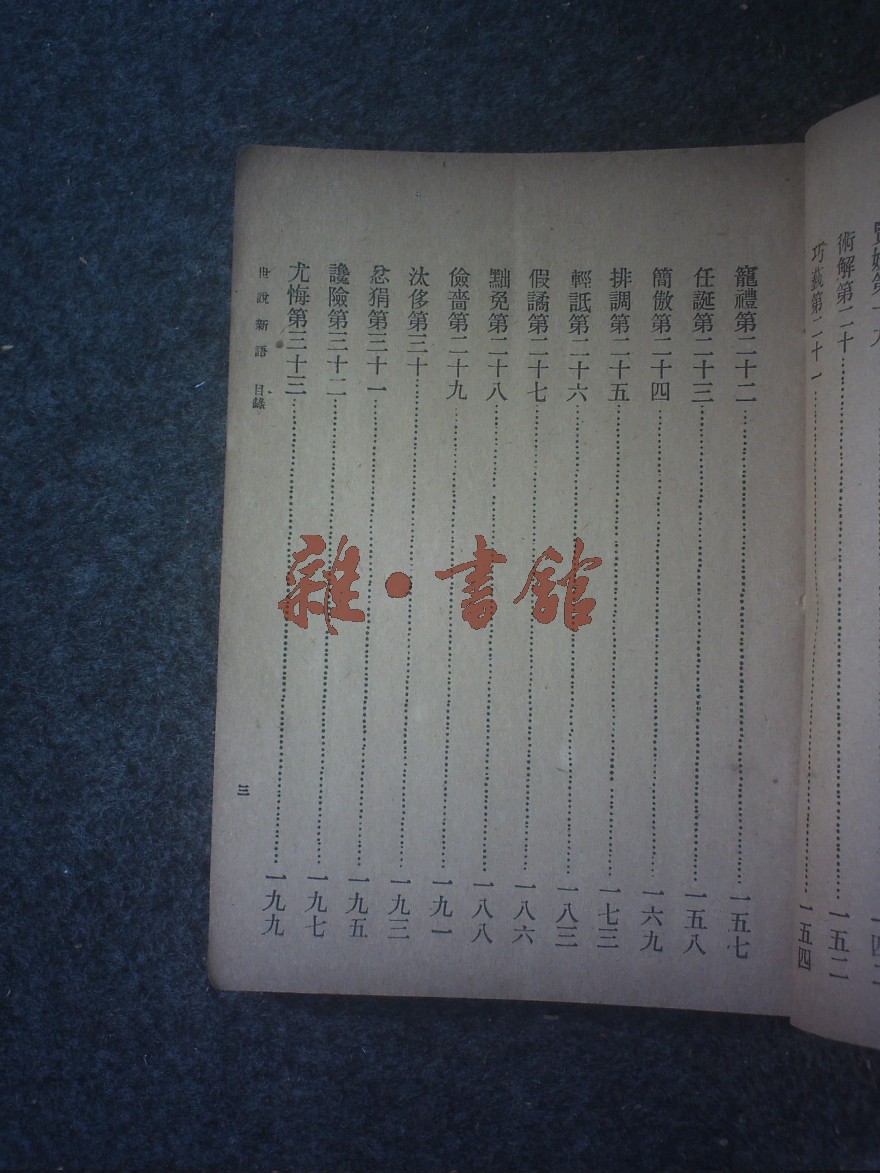 術解第二十 一五二
巧蓺第二十一 一五四
寵禮第二十二 一五七
任誕第二十三 一五八
簡傲第二十四 一六九
排調第二十五 一七三
輕詆第二十六 一八三
假譎第二十七 一八六
黜免第二十八 一八八
儉嗇第二十九 一九一
汰侈第三十 一九三
忿狷第三十一 一九五
讒險第三十二 一九七
尤悔第三十三 一九九
世說新語 目錄 三
雜·書館